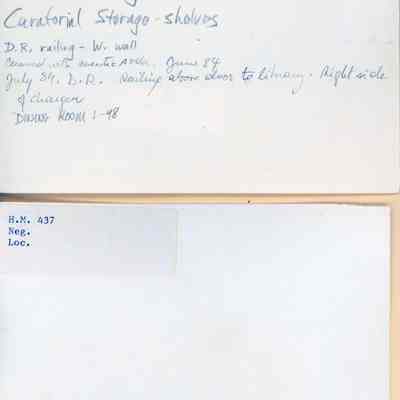 Curatorial Storage - shelves
D.R. railing - W. wall
Cleaned with caustic soda. June 84
July 84. D.R. Railing above door to library. Right side
of charger
DINING ROOM 1-98
H.M. 437
Neg.
Loc.